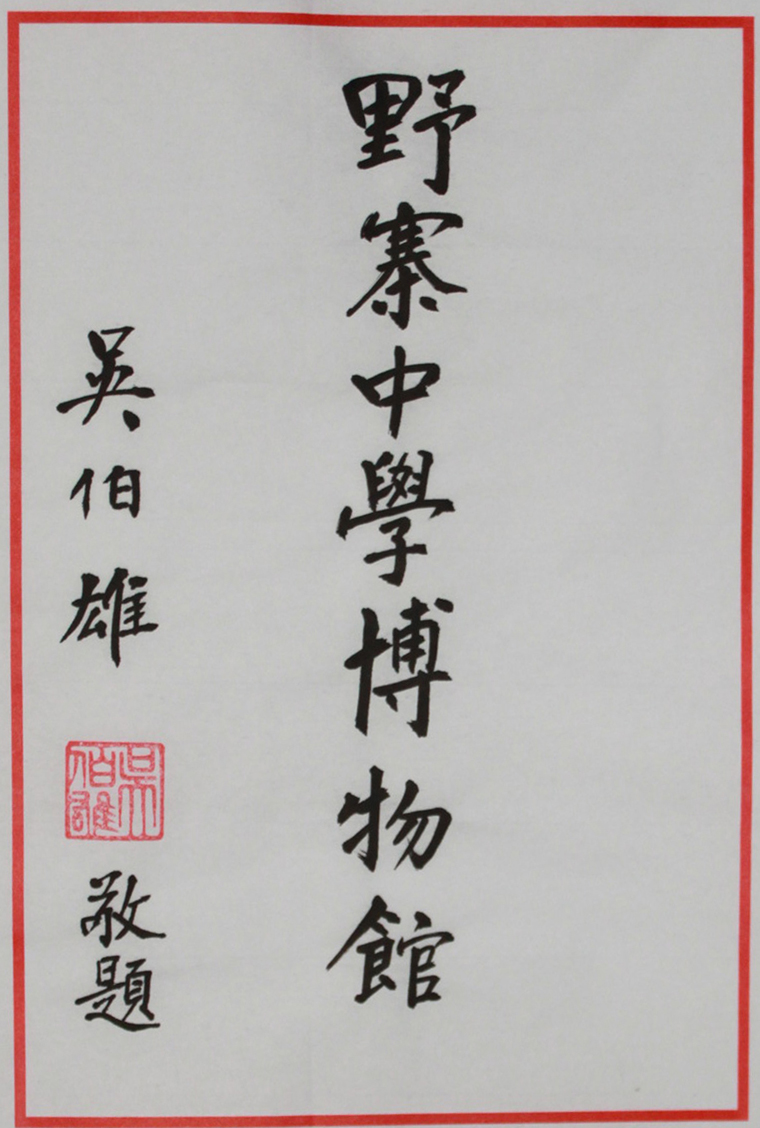 野寨中學博物館
吳伯雄
吳伯雄
敬題